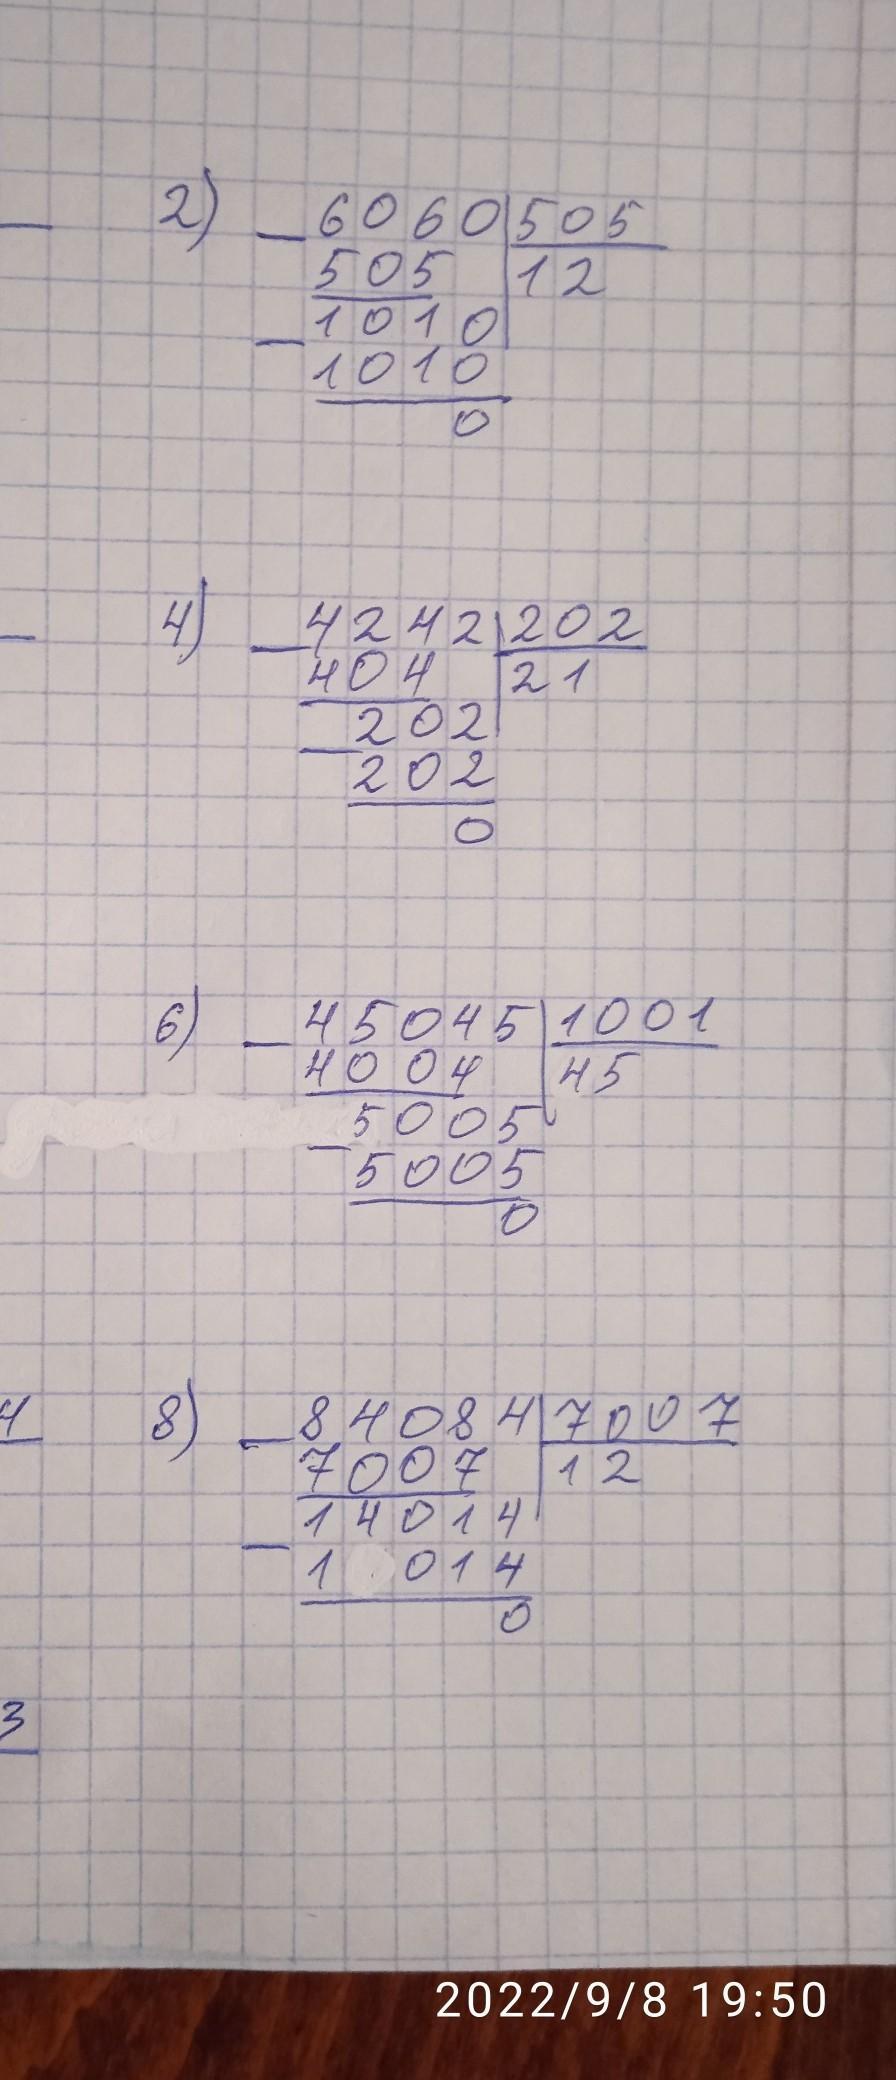 2) 6060 505
505 12
1010
1010
0
4) 4242 202
404 21
202
202
0
6) 45045 1001
4004 45
5005
5005
0
4
8) 84084 7007
7007 12
14014
1 014
0
3
2022/9/8 19:50